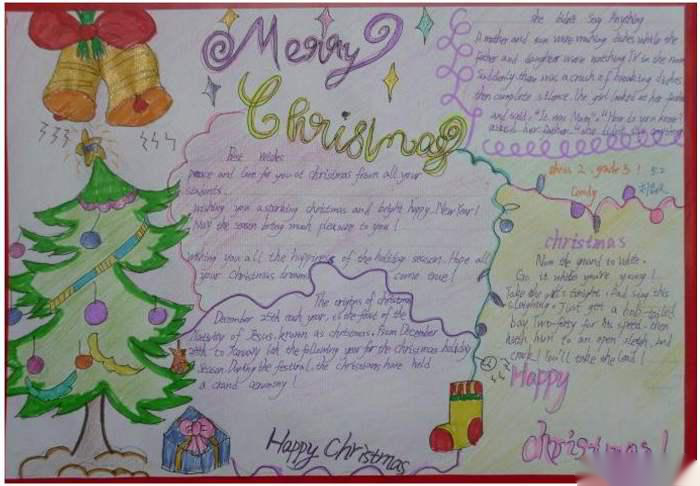 Merry
Christmas
She didn't say Anything
A mother and son were washing dishes while the
father and daughter were watching TV in the room
Suddenly there was a crash of breaking dishes,
then complete silence. The girl looked at her father
and said. "Is was Mum". "How do you know?"
asked her father. "she didn't say anything
class 2, grade 3!
Candy
Best wishes
peace and love for you at christmas from all your
students.
wishing you a sparking christmas and bright happy New Year!
May the season bring much pleasure to you!
wishing you all the happiness of the holiday season. Hope all
your Christmas dreams come true!
The origins of christmas
December 25th each year, is the feast of the
Nativity of Jesus, known as christmas. From December
24th to January 6th the following year for the christmas holiday
season. During the festival, the christians have held
a grand ceremony!
christmas
Now the ground is white.
Go it while you're young!
Take the girls tonight. And sing this
sleighing. Just get a bob-tailed
bay. Two-forty for his speed. then
hitch him to an open sleigh, and
crack! You'll take the lead!
Happy
christmas!
Happy Christmas